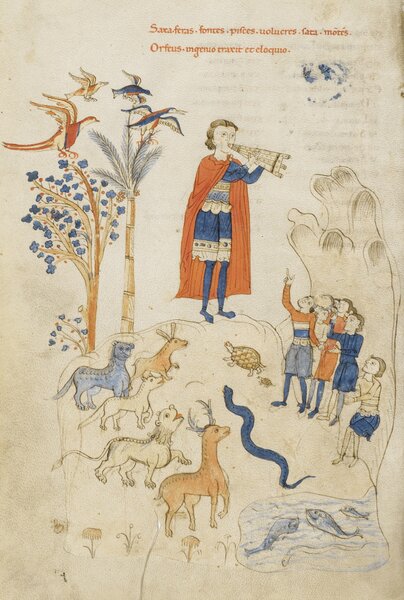 Saxa·feras·fontes·pisces·volucres·sata·mōtes·
Orfeus·ingenio traxit et eloquio·